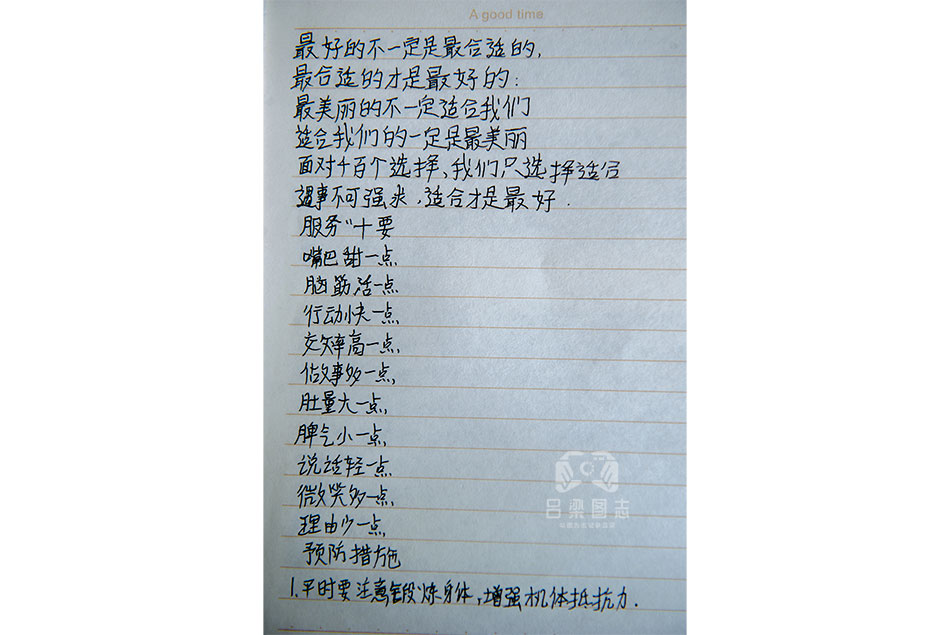 A good time
最好的不一定是最合适的,
最合适的才是最好的:
最美丽的不一定适合我们
适合我们的一定是最美丽
面对千百个选择、我们只选择适合
遇事不可强求,适合才是最好.
服务"十要
嘴巴甜一点
脑筋活一点
行动快一点,
效率高一点,
做事多一点,
肚量大一点,
脾气小一点,
说话轻一点
微笑多一点,
理由少一点,
预防措施
1.平时要注意锻炼身体,增强机体抵抗力.
吕梁图志